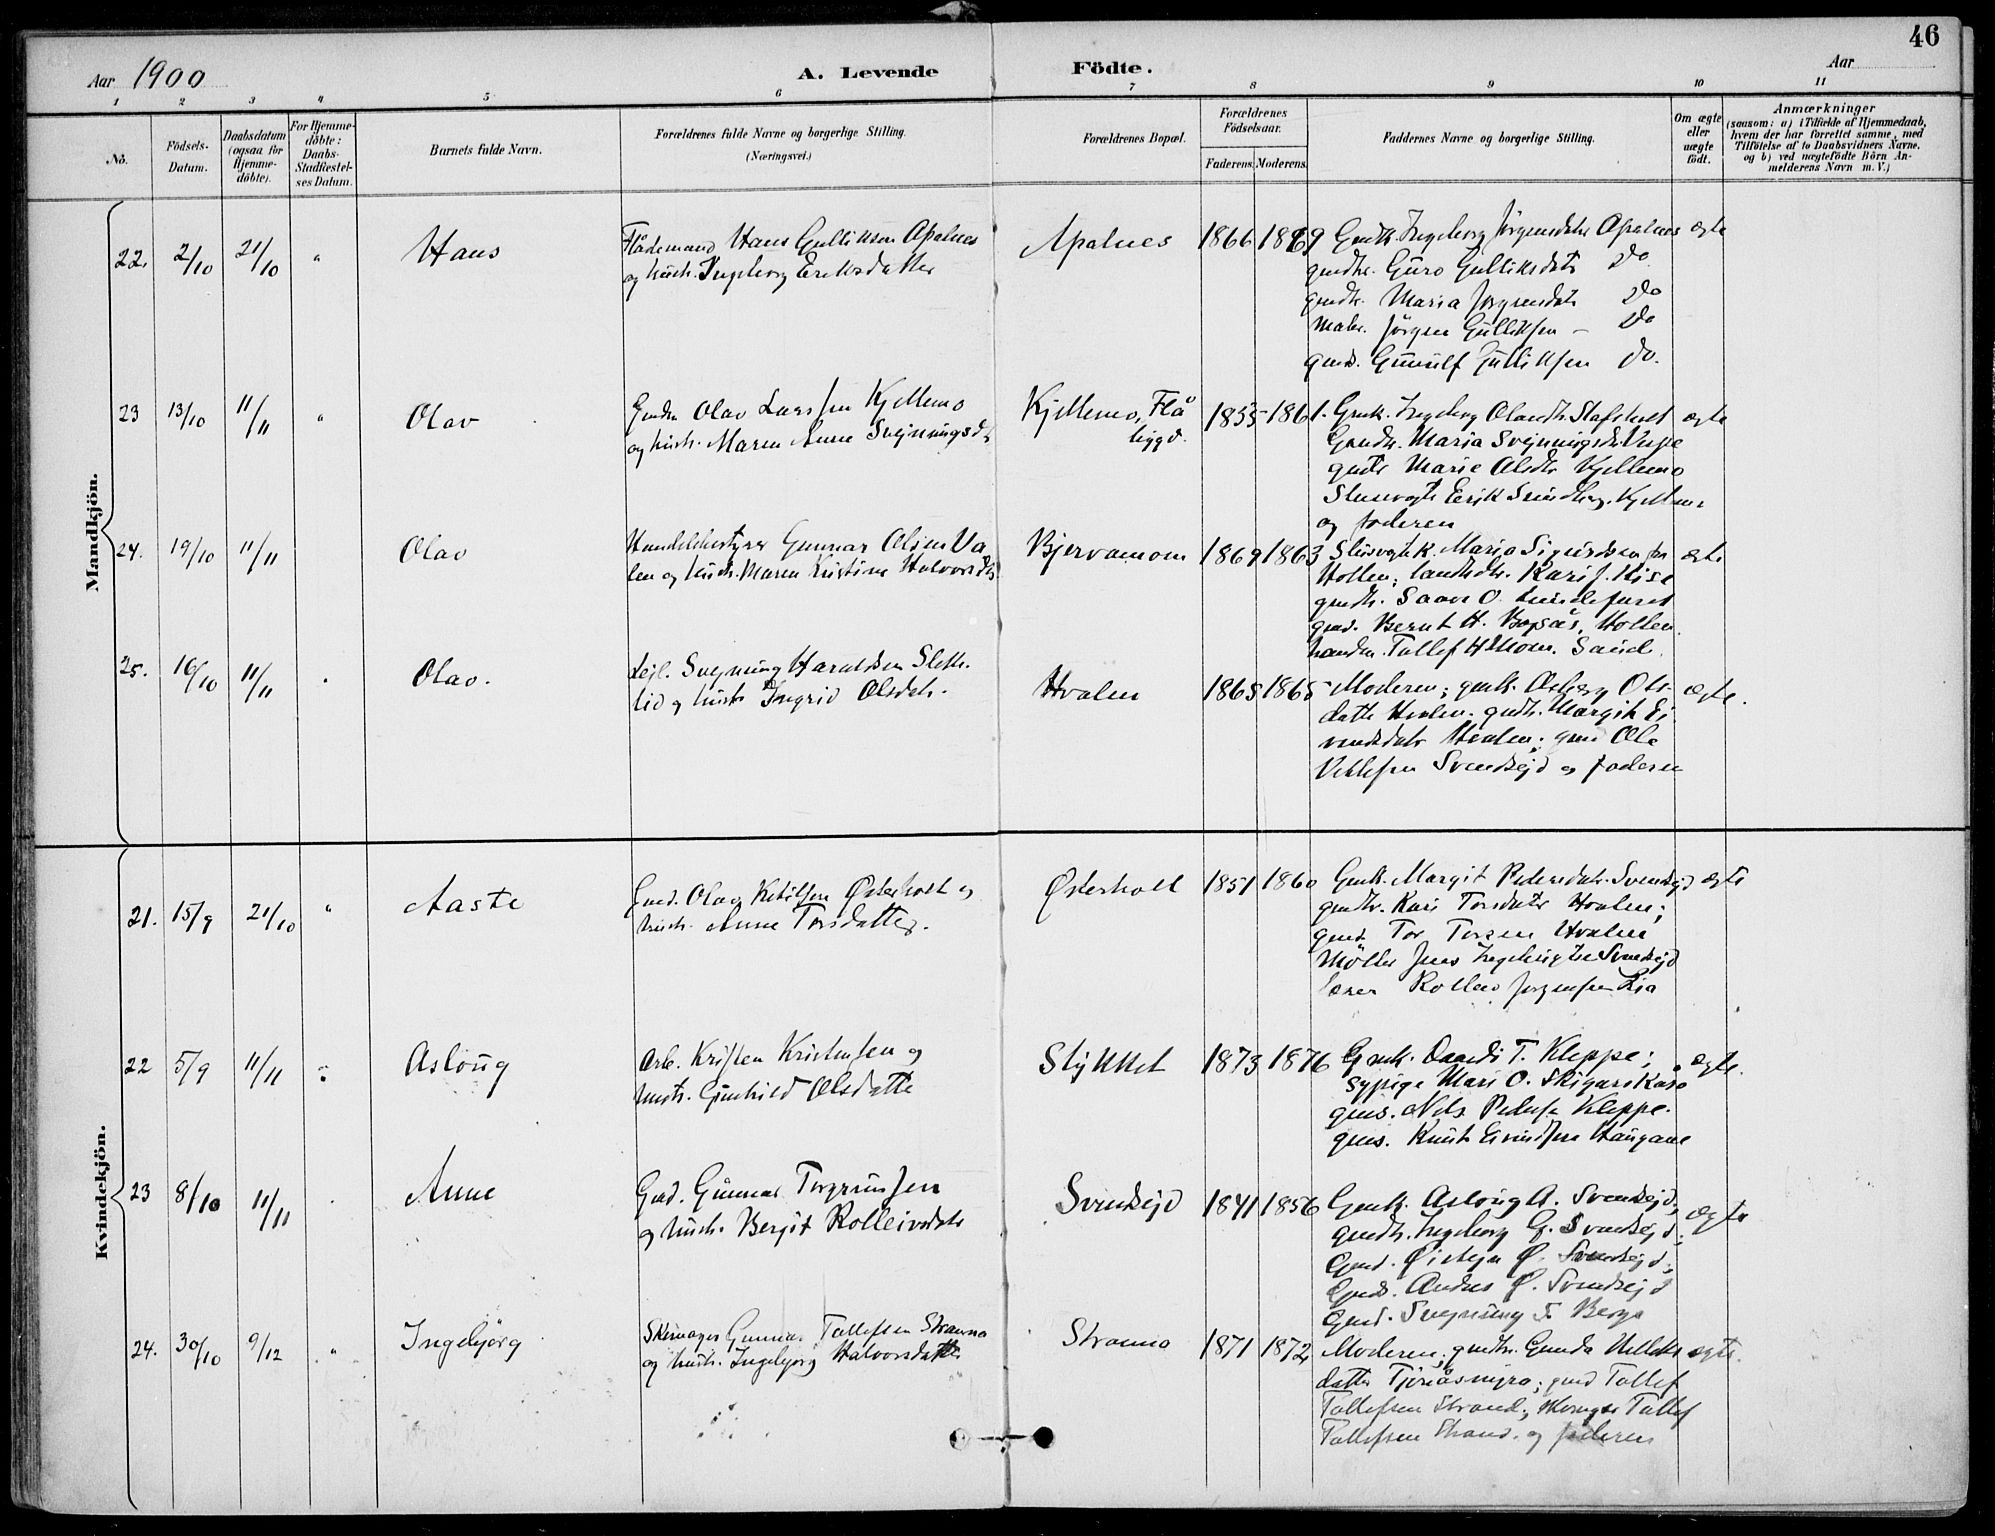 46
Aar 1900
A. Levende
Födte.
Aar
1 2 3 4 5 6 7 8 9 10 11
No.
Födsels-
Datum.
Daabsdatum
(ogsaa for
Hjemme-
döbte).
For Hjemme-
döbte:
Daabs-
Stadfæstel-
ses Datum.
Barnets fulde Navn.
Forældrenes fulde Navne og borgerlige Stilling.
(Næringsvei.)
Forældrenes Bopæl.
Forældrenes
Födselsaar.
Faderens.
Moderens.
Faddernes Navne og borgerlige Stilling.
Om ægte
eller
uægte
født.
Anmærkninger
(saasom: a) i Tilfælde af Hjemmedaab,
hvem der har forrettet samme, med
Tilföielse af to Daabsvidners Navne,
og b) ved uægtefödte Börn An-
melderens Navn m. V.)
Mandkjön.
22. 2/10 21/10 " Hans
Flådemand Hans Gulliksen Apalnes
og hustr. Ingeborg Eriksdatter
Apalnes 1866 1869
Gmdk. Ingeborg Jørgensdatter Apalnes
gmdtr. Guro Gulliksdatr Do
gmdtr. Maria Jørgensdatr Do
Jörgen Gulliksen — Do
gmds. Gunulf Gulliksen Do.
ægte
23 13/10 11/11 " Olav
Gmdm Olav Larssen Kjellemo
og hustr. Maren Anne Svejnungsdr
Kjellemo, Flå
byggd.
1855 1861.
Gmk. Ingeborg Olavdtr.
Gmdtr. Maria Svejnungsdtr
gmdtr Marie Olsdtr Kjellemo
Slusevogt Erik
og faderen
ægte
24. 19/10 11/11 Olav
Handelsbestyrer Gunnar Olsen Va
len og hustr. Maren Kristine Halvorsdtr
Bjervamoen 1869 1863
Slusvogtk. Maria Sigurdsen
Hollen; Kari J. Kise
gmdtr. O.
gmd. Bernt H. Hollen.
Tallef
ægte
25. 16/10 11/11 Olav.
Lejl. Svejnung Haraldsen Sleth.
lid og hustr Ingrid Olsdtr.
Hvalen 1865 1865
Moderen; gmk. Asberg Ols-
datt Hvalen. gmdtr. Margit Ei
vindsdatr Hvalen; gmd Ole
Svendsejd og faderen
ægte.
Kvindekjön.
21. 15/9 21/10 " Aaste
Gmd. Olav Ketilsen Østerholt og
hustr. Anne Torsdatter.
Østerholt 1851 1860
Gmk. Margit Pedersdatr. Svendsejd
gmdtr. Kari Torsdatr Hvalen;
gmd. Tor Torsen Hvalen
Møller Jens Svendsejd
Rollev Jørgensen Lia
ægte
22 5/9 11/11 Asloug
Arb. Kristen Kristensen og
hustr. Gunhild Olsdatte
Stykket 1873 1876
Gmk. T. Kleppe;
sypige Mari O.
gms. Nels Peders Kleppe.
gms. Knut Eivindsen Haugane
ægte.
23 8/10 11/11 Anne
Gmd. Gunnar Torgrimsen
og hustr. Bergit Rolleivsdatr
Svendsejd 1841 1856
Gmk. Asloug A. Svendsejd;
gmdtr. Ingeborg G. Svendsejd;
Gmd. Øistejn Ø. Svendsejd;
Gmds. Anders Ø. Svendsejd
Gmd. Svejnung T. Berge
ægte
24. 30/10 9/12 " Ingebjörg
Skomager Gunnar Tallefsen Stranna
og hustr. Ingebjorg Halvorsdatter
Stranna 1871 1872
Moderen; gmdtr. Gunda
datter gmd Tallef
Tallefsen Strand; Tallef
Tallefsen Strand. og faderen
ægte.